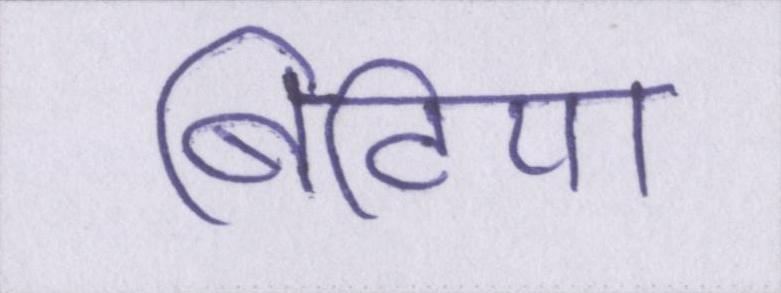 बिटिया